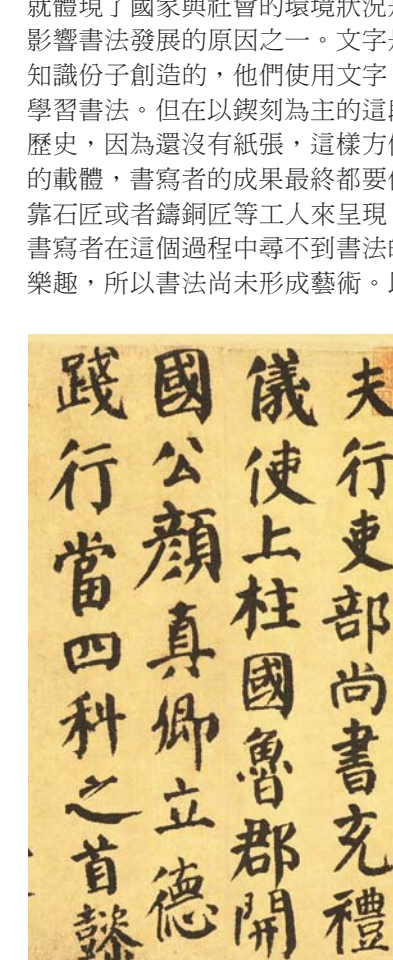 就體現了國家與社會的環境狀況是
影響書法發展的原因之一。文字是
知識份子創造的，他們使用文字
學習書法。但在以鍥刻為主的這段
歷史，因為還沒有紙張，這樣方便
的載體，書寫者的成果最終都要依
靠石匠或者鑄銅匠等工人來呈現
書寫者在這個過程中尋不到書法的
樂趣，所以書法尚未形成藝術。以
夫行吏部尚書充禮
儀使上柱國魯郡開
國公顏真卿立德
踐行當四科之首懿